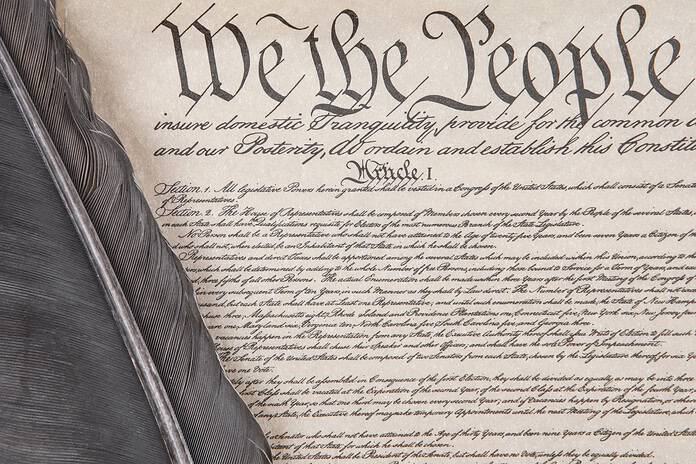 We the People
insure domestic Tranquility, provide for the common
and our Posterity, do ordain and establish this Constit
Article. I.
Section. 1. All legislative Powers herein granted shall be vested in a Congress of the United States, which shall consist of a Senate
of Representatives.
Section. 2. The House of Representatives shall be composed of Members chosen every second Year by the People of the several States
in each State shall have Qualifications requisite for Electors of the most numerous Branch of the State Legislature.
No Person shall be a Representative who shall not have attained to the Age of twenty five Years, and been seven Years a Citizen of the
who shall not, when elected, be an Inhabitant of that State in which he shall be chosen.
Representatives and direct Taxes shall be apportioned among the several States which may be included within this Union, according to
which shall be determined by adding to the whole Number of free Persons, including those bound to Service for a Term of Years, and
three fifths of all other Persons. The actual Enumeration shall be made within three Years after the first Meeting of the Congress of
every subsequent Term of ten Years, in such Manner as they shall by Law direct. The Number of Representatives shall not
but each State shall have at Least one Representative; and until such enumeration shall be made, the State of New Hamp
three, Massachusetts eight, Rhode Island and Providence Plantations one, Connecticut five, New York six, New Jersey
one, Maryland six, Virginia ten, North Carolina five, South Carolina five, and Georgia three.
vacancies happen in the Representation from any State, the Executive Authority thereof shall issue Writs of Election to fill such
of Representatives shall chuse their Speaker and other Officers; and shall have the sole Power of Impeachment.
The Senate of the United States shall be composed of two Senators from each State, chosen by the Legislature thereof for six
one Vote.
after they shall be assembled in Consequence of the first Election, they shall be divided as equally as may be into three
Class shall be vacated at the Expiration of the second Year, of the second Class at the Expiration of the fourth Year
of the sixth Year, so that one third may be chosen every second Year; and if Vacancies happen by Resignation, or
State, the Executive thereof may make temporary Appointments until the next Meeting of the Legislature, which
Senator who shall not have attained to the Age of thirty Years, and been nine Years a Citizen of the United States
of that State for which he shall be chosen.
United States shall be President of the Senate, but shall have no Vote, unless they be equally divided.